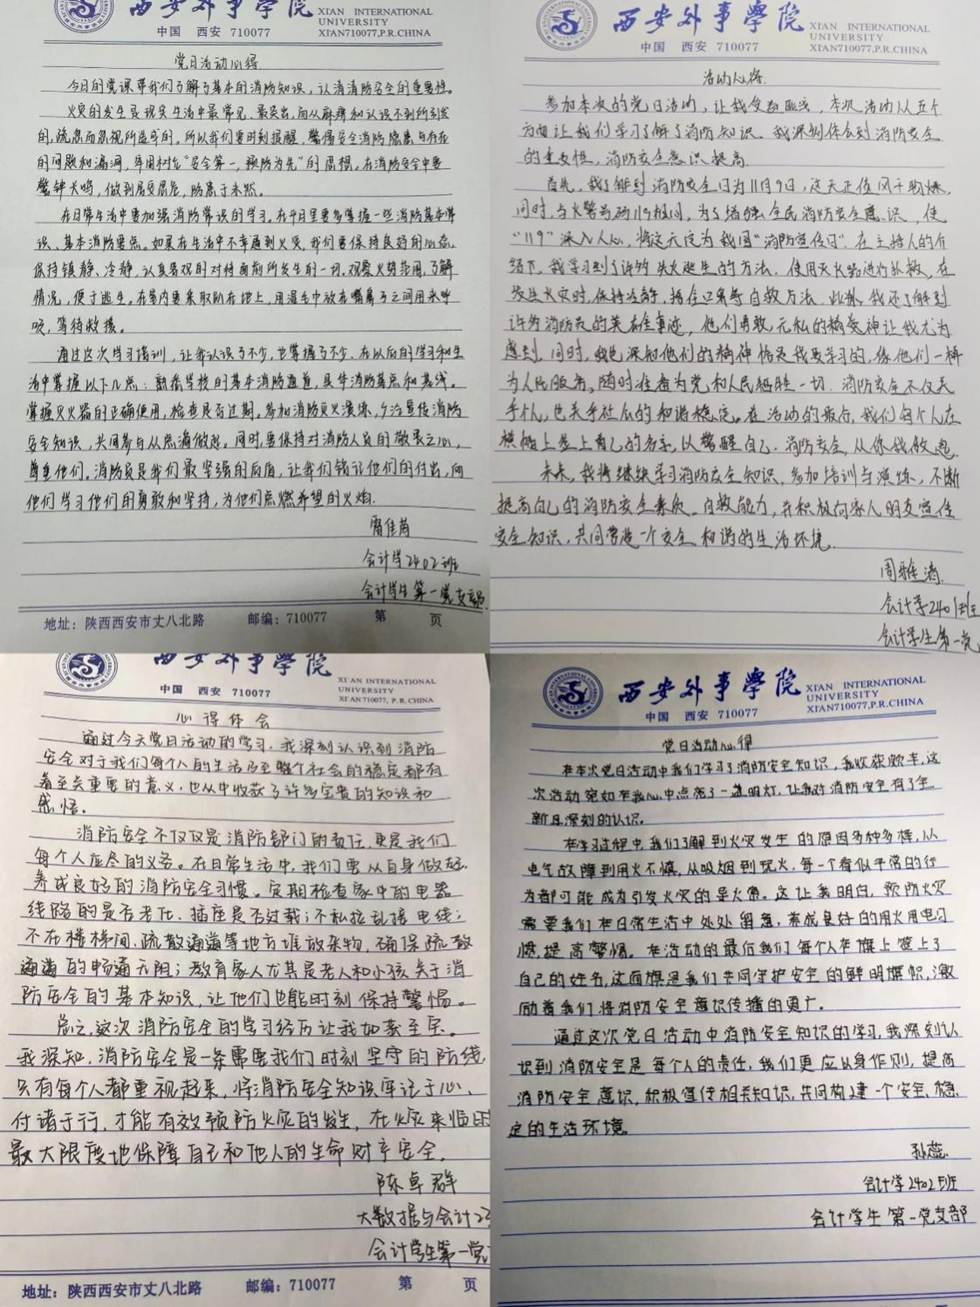 西安外事學院
XIAN INTERNATIONAL
UNIVERSITY
中国 西安 710077
XI'AN710077,P.R.CHINA
党日活动心得
今日的党课带我们了解了基本的消防知识，认清消防安全的重要性。
火灾的发生是现实生活中最常见、最突出，而从麻痹和认识不到所引发
的，疏忽而忽视所造成的，所以我们要时刻提醒，警惕安全消防隐患与存在
的问题和漏洞，牢固树立“安全第一，预防为先”的思想。在消防安全中要
警钟长鸣，做到居安思危，防患于未然。
在日常生活中要加强消防常识的学习，在平日里要多掌握一些消防基本常
识、基本消防要点。如果在生活中不幸遇到火灾，我们要保持良好的心态，
保持镇静、冷静，认真客观的对待面前所发生的一切，观察火势范围，了解
情况，便于逃生，在室内要采取趴在地上，用湿毛巾放在嘴鼻子之间用来呼
吸，等待救援。
通过这次学习培训，让我认识了不少，也掌握了不少，在以后的学习和生
活中掌握以下几点：熟悉学校的基本消防通道，具体消防基点和基线。
掌握灭火器的正确使用，检查是否过期。参加消防灭火演练，多注重传消防
安全知识，共同参与从点滴做起。同时，要保持对消防人员的敬畏之心，
尊重他们。消防员是我们最坚强的后盾，让我们铭记他们的付出，向
他们学习他们的勇敢和坚持，为他们点燃希望的火焰。
会计学2402班
会计学生第一党支部
地址：陕西西安市丈八北路 邮编：710077 第 页
西安外事學院
XIAN INTERNATIONAL
UNIVERSITY
中国 西安 710077
XI'AN710077,P.R.CHINA
活动心得
参加本次的党日活动，让我受益匪浅，本次活动从五个
方面让我们学习了解了消防知识。我深刻体会到消防安全
的重要性，消防安全意识提高。
首先，我了解到消防安全日为11月9日，这天正值风干物燥，
同时，与火警号码119相同，为了增强全民消防安全意识，使
“119”深入人心，将这天定为我国“消防宣传日”。在主持人的介
绍下，我学习到了许多失火逃生的方法，使用灭火器进行扑救，在
发生火灾时，保持冷静，捂住口鼻等自救方法。此外，我还了解到
许多消防员的英雄事迹，他们勇敢、无私的精神让我尤为
感动，同时，我也深知他们的精神恰是我要学习的，像他们一样
为人民服务，随时准备为党和人民牺牲一切。消防安全不仅关
乎个人，也关乎社会的和谐稳定。在活动的最后，我们每个人在
旗帜上签上自己的名字，以警醒自己，消防安全，从你我做起。
未来，我将继续学习消防安全知识，参加培训与演练，不断
提高自己的消防安全素质、自救能力，并积极向家人朋友宣传
安全知识，共同营造一个安全和谐的生活环境。
周雅涛
会计学2401班
会计学生第一党
西安外事學院
XI'AN INTERNATIONAL
UNIVERSITY
中国 西安 710077
XI'AN710077, P.R.CHINA
心得体会
通过今天党日活动的学习，我深刻认识到消防
安全对于我们每个人的生活乃至整个社会的稳定都有
着至关重要的意义，也从中收获了许多宝贵的知识和
感悟。
消防安全不仅仅是消防部门的责任，更是我们
每个人应尽的义务。在日常生活中，我们要从自身做起，
养成良好的消防安全习惯。定期检查家中的电器
线路的是否老化，插座是否过载；不私拉乱接电线；
不在楼梯间、疏散通道等地方堆放杂物，确保疏散
通道的畅通无阻；教育家人尤其是老人和小孩关于消
防安全的基本知识，让他们也能时刻保持警惕。
总之，这次消防安全的学习经历让我如获至宝。
我深知，消防安全是一条需要我们时刻坚守的防线，
只有每个人都重视起来，将消防安全知识牢记于心、
付诸于行，才能有效预防火灾的发生，在火灾来临时
最大限度地保障自己和他人的生命财产安全。
陈卓群
大数据与会计23
会计学生第一党
地址：陕西西安市丈八北路 邮编：710077 第 页
西安外事學院
XI'AN INTERNATIONAL
UNIVERSITY
中国 西安 710077
XI'AN710077,P.R.CHINA
党日活动心得
在本次党日活动中我们学习了消防安全知识，我收获颇丰，这
次活动宛如在我心中点亮了一盏明灯，让我对消防安全有了全
新且深刻的认识。
在学习过程中，我们了解到火灾发生的原因多种多样，从
电气故障到用火不慎，从吸烟到玩火，每一个看似平常的行
为都可能成为引发火灾的导火索。这让我明白，预防火灾
需要我们在日常生活中处处留意，养成良好的用火用电习
惯，提高警惕。在活动的最后我们每个人在旗上签上了
自己的姓名，这面旗是我们共同守护安全的鲜明旗帜，激
励着我们将消防安全意识传播的更广。
通过这次党日活动中消防安全知识的学习，我深刻认
识到消防安全是每个人的责任，我们更应以身作则，提高
消防安全意识，积极宣传相关知识，共同构建一个安全、稳
定的生活环境。
孙蕊
会计学2402班
会计学生第一党支部